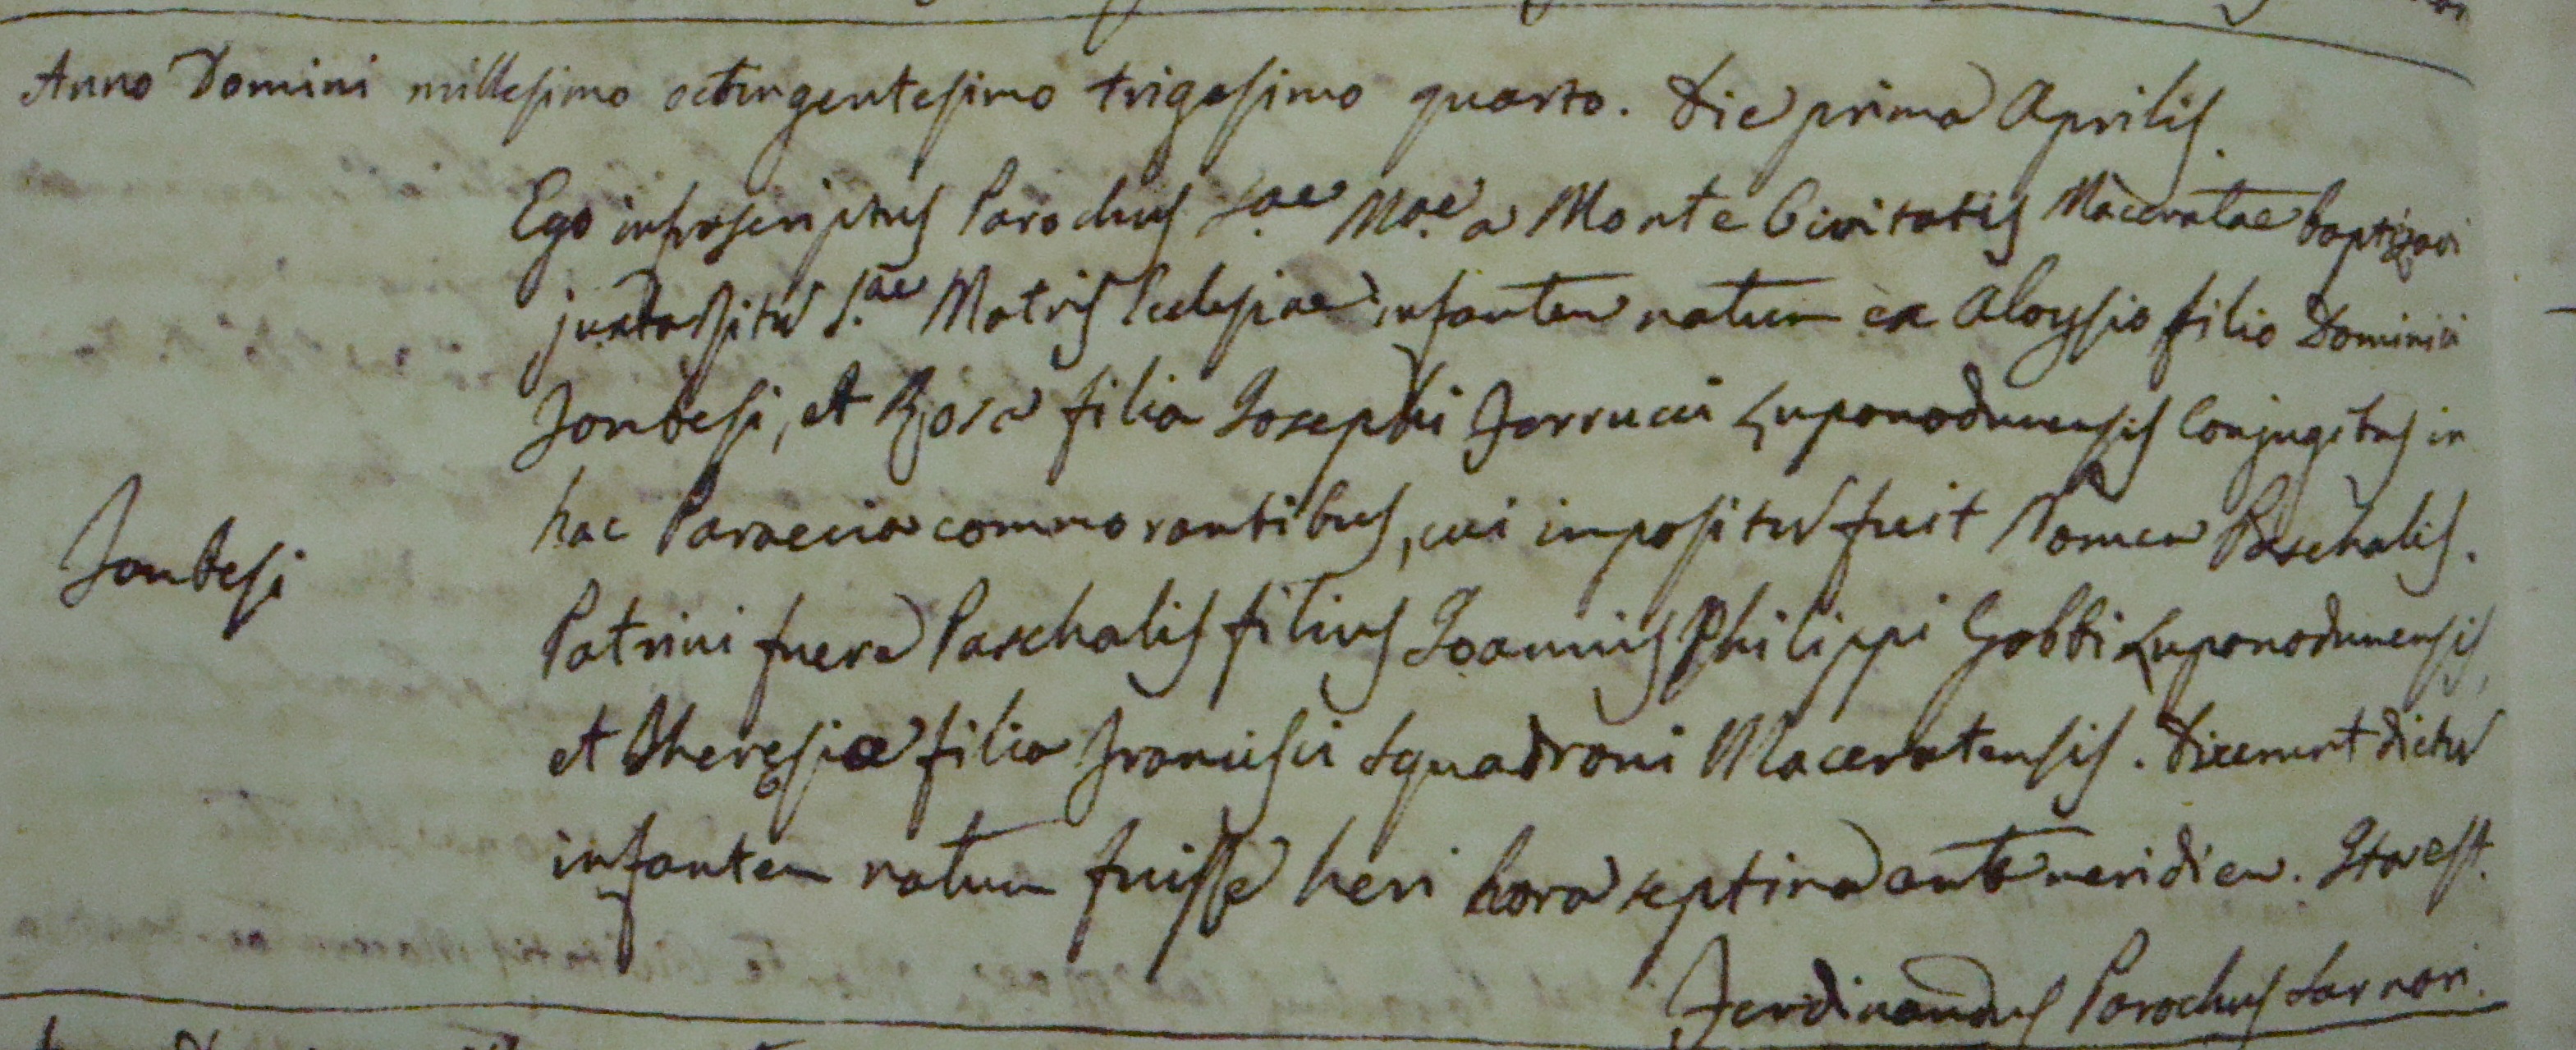 Anno Domini millesimo octingentesimo trigesimo quarto. Die prima Aprilis.
Ego infrascriptus Parochus S.ae M.ae a Monte Civitatis Maceratae baptizavi
juxta Ritū S.ae Matris Ecclesiae infantem natum ex Aloysio filio Dominici
Fontesi, et Rosa filia Josephi Ferrucci Luponodunensis Conjugibus in
hac Paraecia commorantibus, cui impositū fuit Nomen Paschalis.
Fontesi
Patrini fuere Paschalis filius Joannis Philippi Gobbi Luponodunensis,
et Theresia filia Francisci Squadroni Maceratensis. Dixerunt dictū
infantem natum fuisse heri hora septima ante meridiem. Ita est.
Ferdinandus Parochus Sarnari.